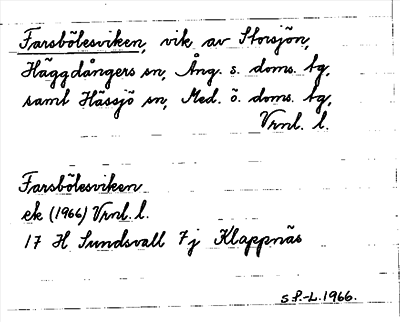 Farsbölesviken, vik av Storsjön,
Häggdångers sn, Ång. s. doms. tg,
samt Hässjö sn, Med. ö. doms. tg,
Vrnl. l.
Farsbölesviken
ek (1966) Vrnl. l.
17 H Sundsvall 7j Klappnäs
S.F.-L. 1966.